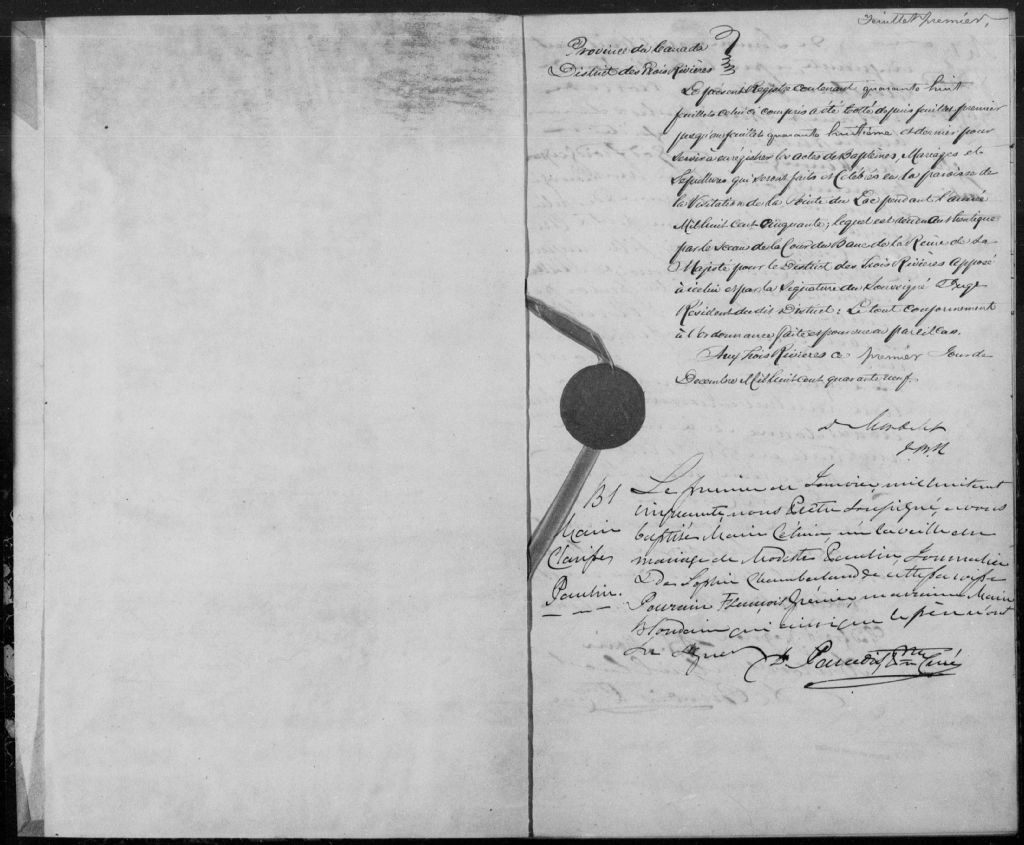 Feuillet premier.
Province du Canada
District des Trois Rivières
Le présent Registre contenant quarante huit
feuillets celui ci compris a été Coté depuis feuillet premier
jusqu'au feuillet quarante huitième et dernier pour
servir à enrégistrer les actes de Baptêmes, Mariages et
Sépultures qui seront faits et Célébrés en la paroisse de
la Visitation de la Pointe du Lac pendant l'année
Mil huit cent Cinquante; lequel est rendu authentique
par le Sceau de la Cour du Banc de la Reine de Sa
Majesté pour le District des Trois Rivières apposé
à icelui et par la Signature du Soussigné Juge
Résident du dit District: Le tout conformement
à l'Ordonnance faite et pourvue en pareil cas.
Aux Trois Rivières ce premier Jour de
Decembre Mil huit cent quarante neuf.
D Mondelet
J.B.R
B1
Marie
Paulin.
Le premier de Janvier, mil huit cent
cinquante, nous Prêtre soussigné, avons
baptisé Marie née la veille du
mariage de Modeste Paulin, Journalier
& De Sophie Chamberland de cette paroisse
Parrain François Grénier, marraine Marie
qui ainsi que le père n'ont
su signer
Curé